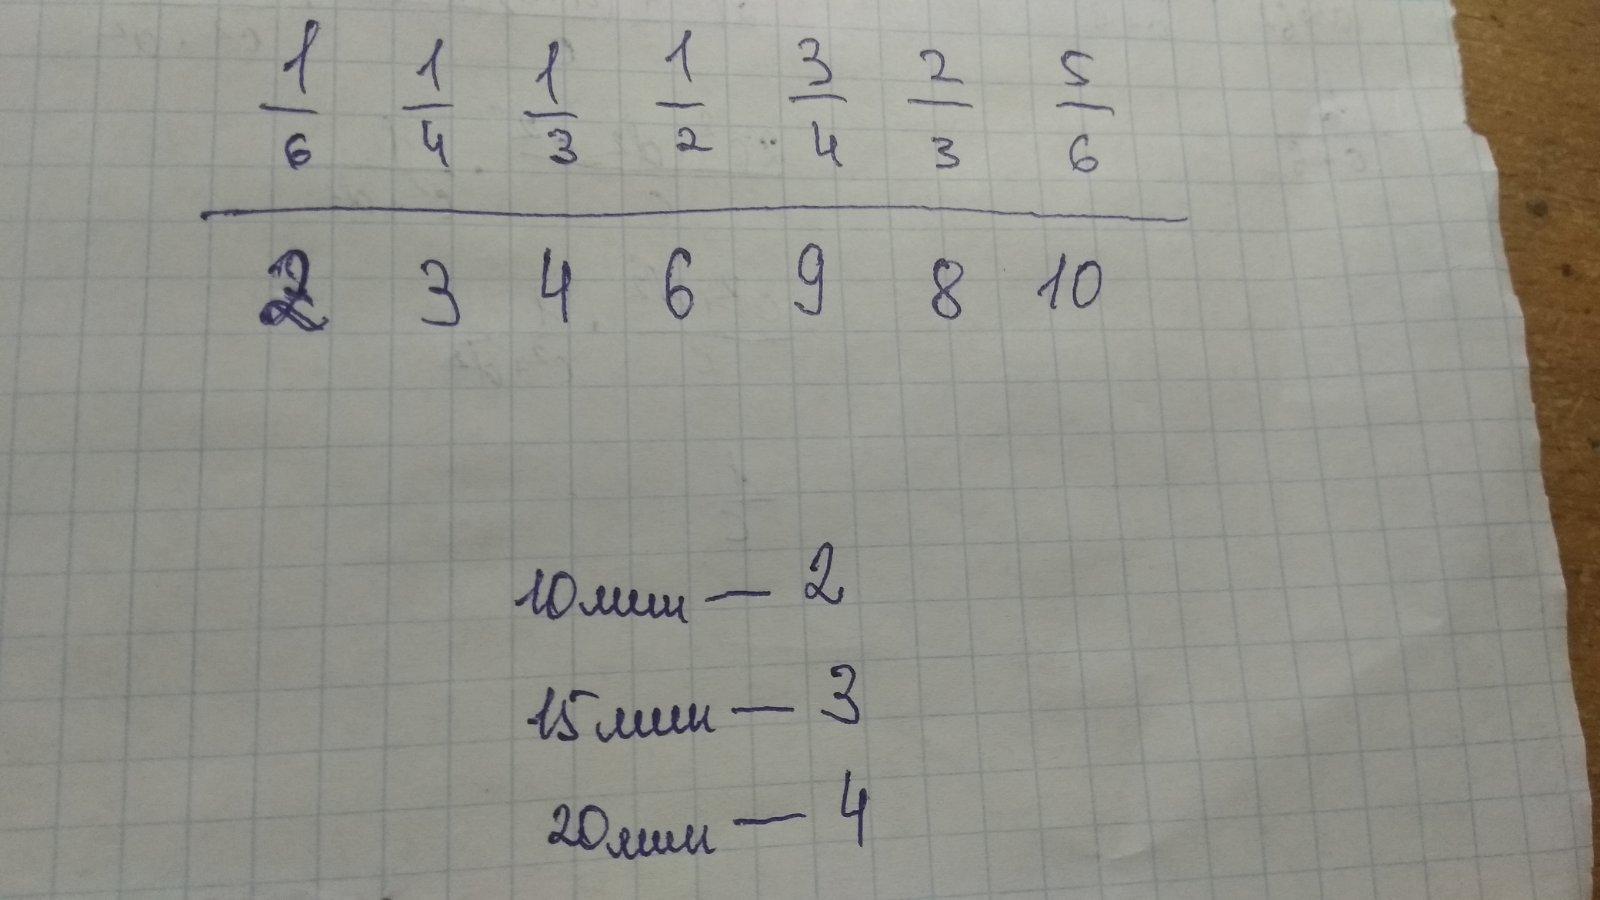 1/6 1/4 1/3 1/2 3/4 2/3 5/6
2 3 4 6 9 8 10
10 мин — 2
15 мин — 3
20 мин — 4